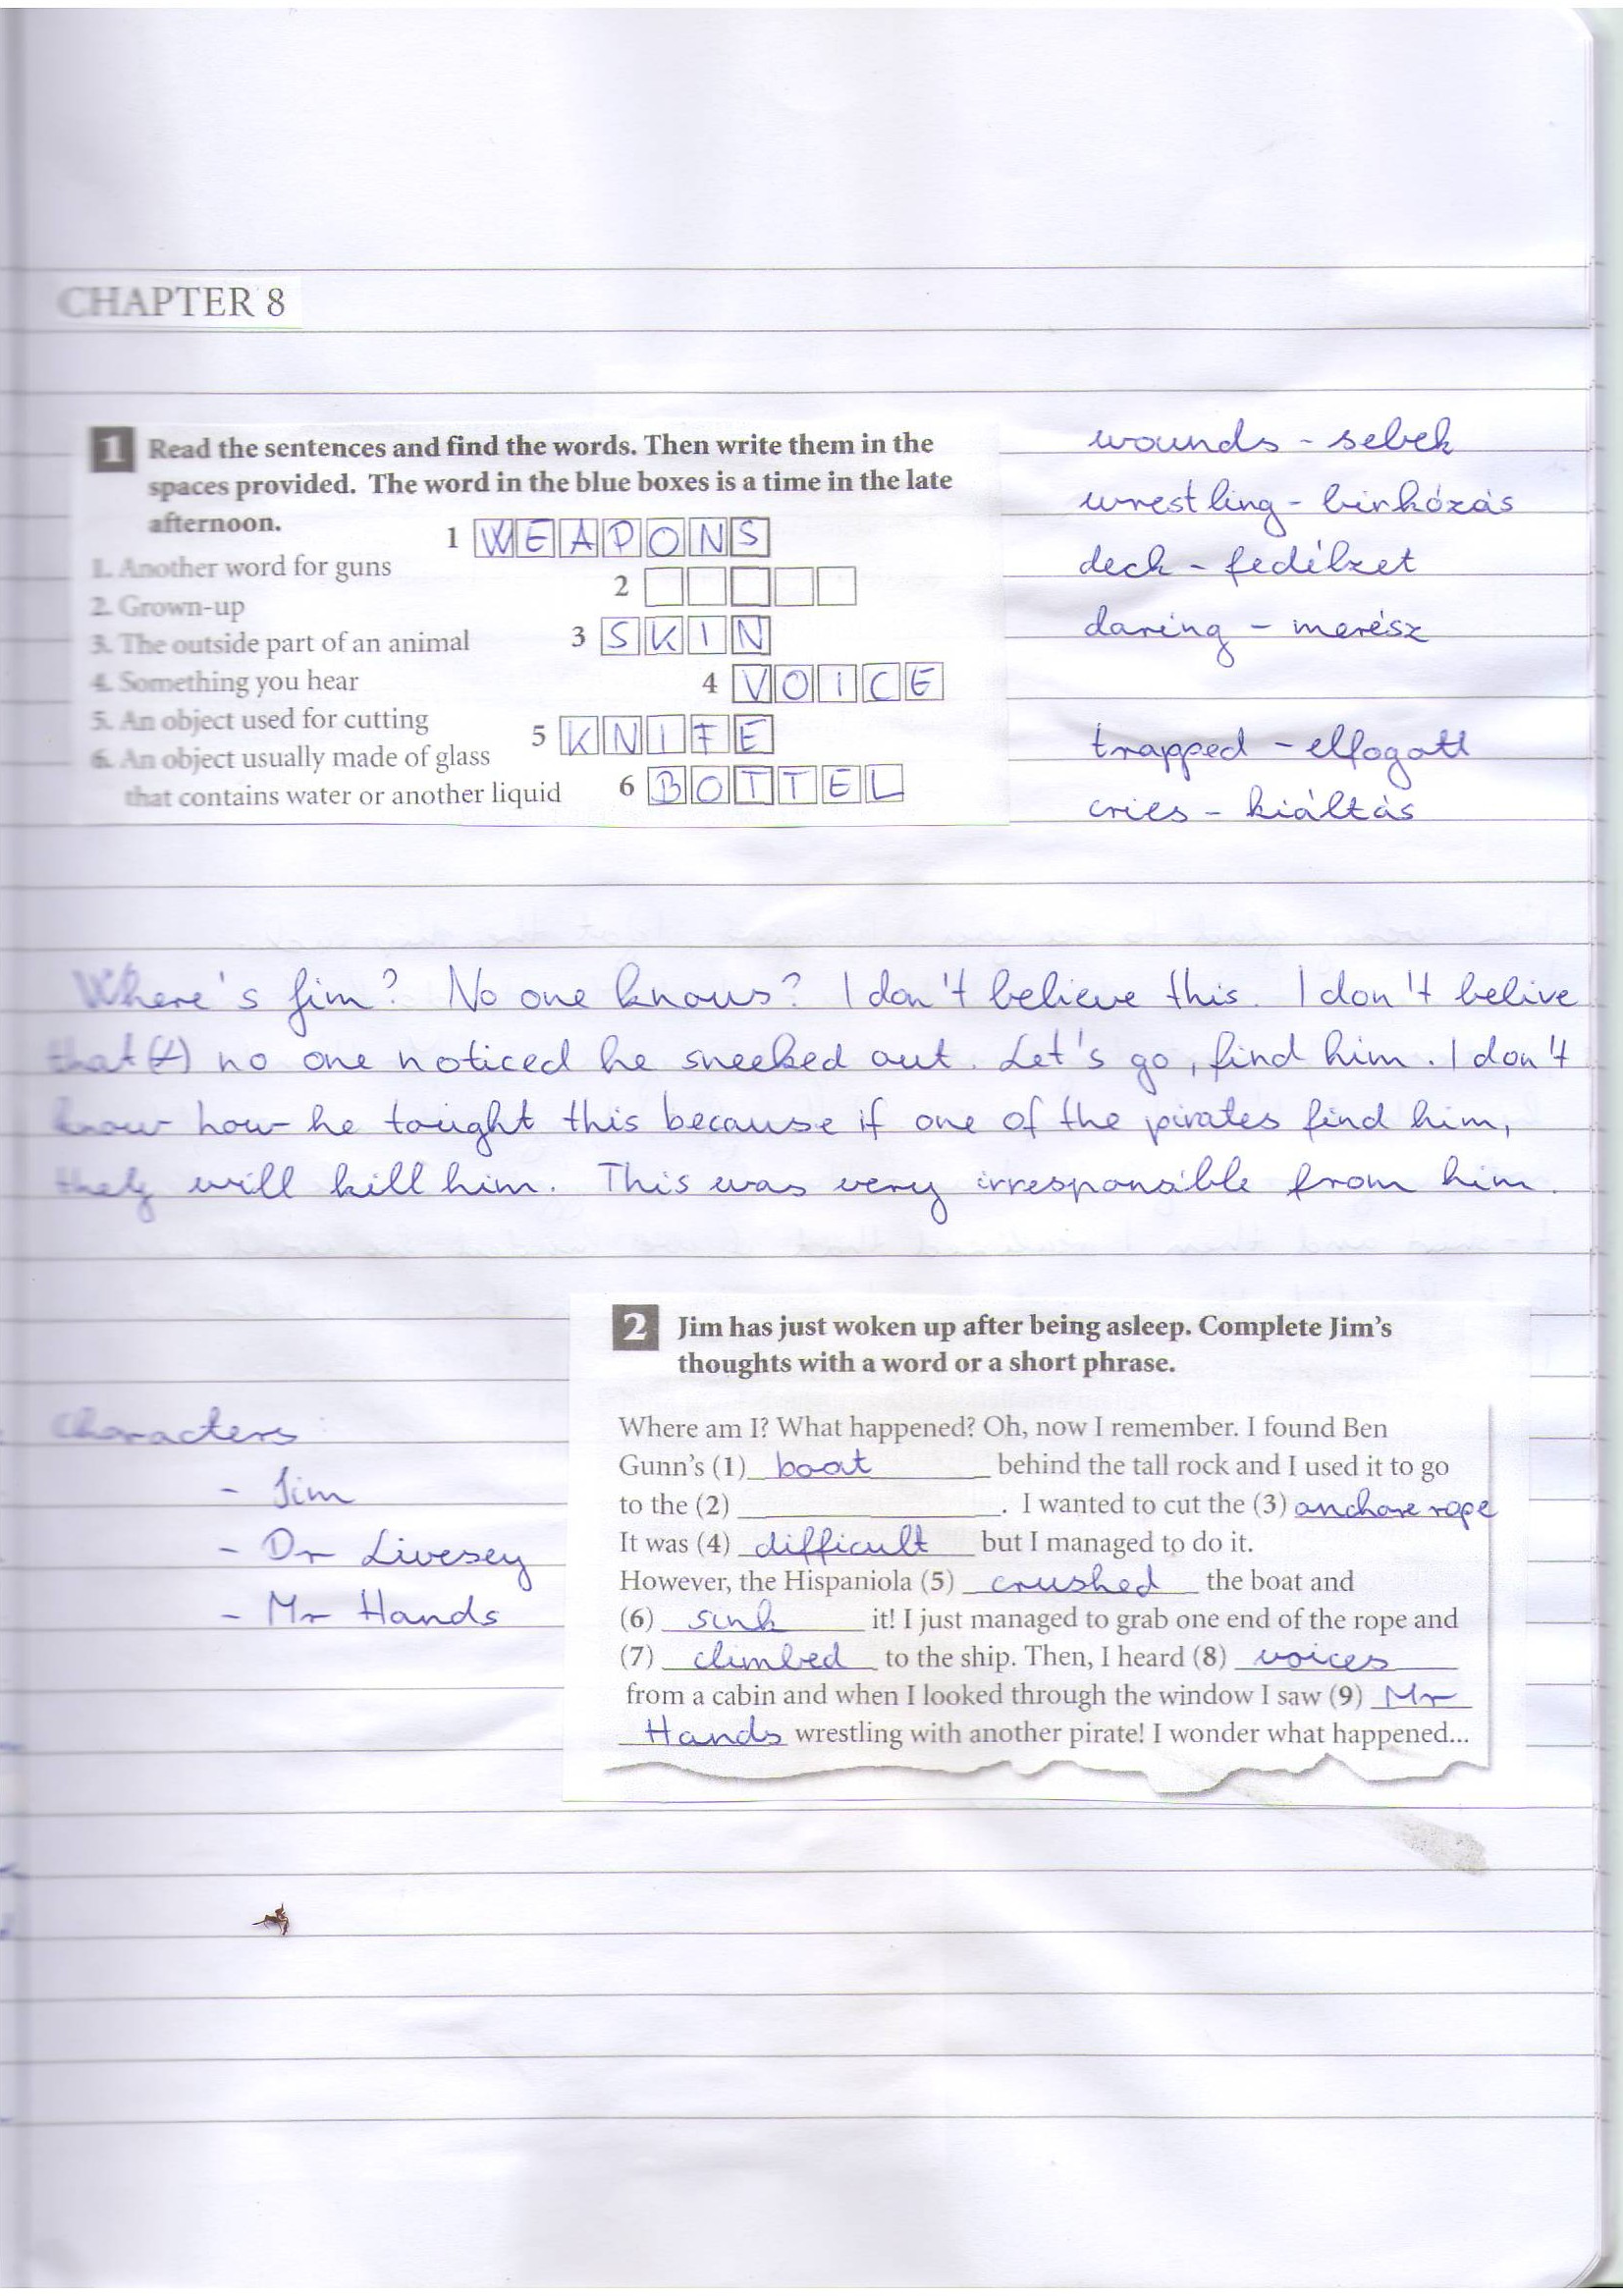 CHAPTER 8
1 Read the sentences and find the words. Then write them in the
spaces provided. The word in the blue boxes is a time in the late
afternoon.
1 WEAPONS
1. Another word for guns
2
2. Grown-up
3. The outside part of an animal
3 SKIN
4. Something you hear
4 VOICE
5. An object used for cutting
5 KNIFE
6. An object usually made of glass
that contains water or another liquid
6 BOTTEL
wounds - sebek
wrestling - birkózás
deck - fedélzet
daring - merész
trapped - elfogott
cries - kiáltás
Where's Jim? No one knows? I don't believe this. I don't belive
that(t) no one noticed he sneeked out. Let's go, find him. I don't
know how he tought this because if one of the pirates find him,
they will kill him. This was very irresponsible from him.
2 Jim has just woken up after being asleep. Complete Jim's
thoughts with a word or a short phrase.
Where am I? What happened? Oh, now I remember. I found Ben
Gunn's (1) boat behind the tall rock and I used it to go
to the (2) ____________. I wanted to cut the (3) anchore rope
It was (4) difficult but I managed to do it.
However, the Hispaniola (5) crushed the boat and
(6) sink it! I just managed to grab one end of the rope and
(7) climbed to the ship. Then, I heard (8) voices
from a cabin and when I looked through the window I saw (9) Mr
Hands wrestling with another pirate! I wonder what happened...
Characters
- Jim
- Dr Livesey
- Mr Hands